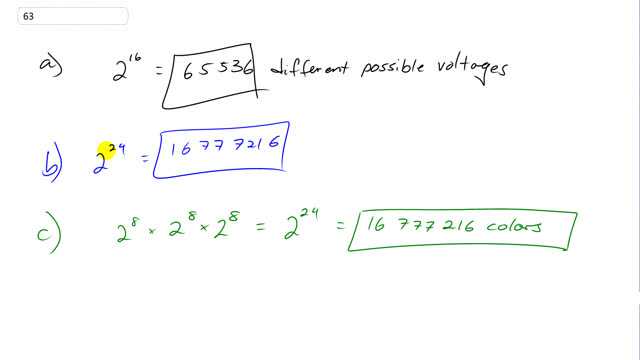 63
a) 2^16 = 65536 different possible voltages
b) 2^24 = 16 777 216
c) 2^8 × 2^8 × 2^8 = 2^24 = 16 777 216 colors